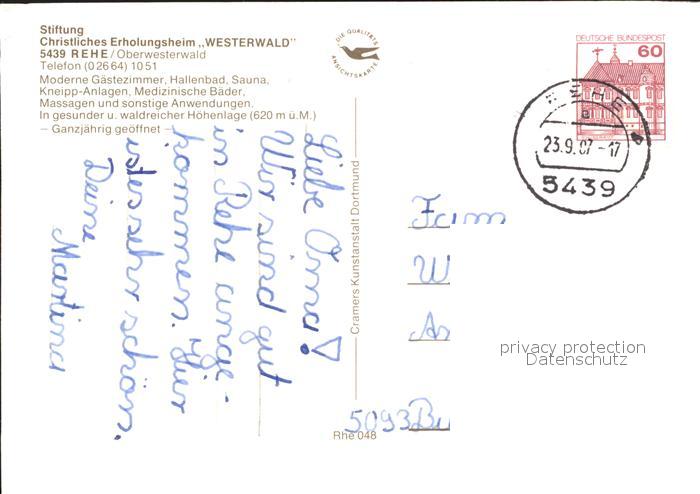 Stiftung
Christliches Erholungsheim „WESTERWALD"
5439 REHE/Oberwesterwald
Telefon (0 26 64) 10 51
Moderne Gästezimmer, Hallenbad, Sauna,
Kneipp-Anlagen, Medizinische Bäder,
Massagen und sonstige Anwendungen.
In gesunder u. waldreicher Höhenlage (620 m ü.M.)
– Ganzjährig geöffnet –
DIE QUALITÄTS
ANSICHTSKARTE
DEUTSCHE BUNDESPOST
60
REHE
a
23.9.87-17
5439
Liebe Oma!
Wir sind gut
in Rehe ange-
kommen. Hier
ist es sehr schön.
Deine
Martina
Cramers Kunstanstalt Dortmund
Fam
W
5093 Bu
Rhe 048
privacy protection
Datenschutz